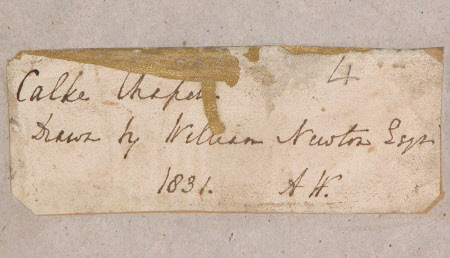 4
Calke Chapel.
Drawn by William Newton Esqr
1831. A H.